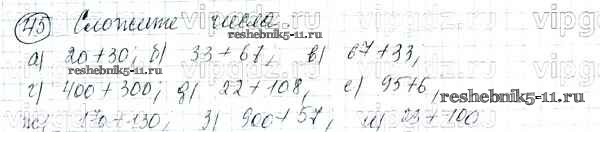 45 Сложите числа.
а) 20+30; б) 33+67, в) 67+33,
г) 400+300; д) 22+108, е) 95+6,
ж) 170+130, з) 900+57, и) 23+100
reshebnik5-11.ru
reshebnik5-11.ru
reshebnik5-11.ru
vipgdz